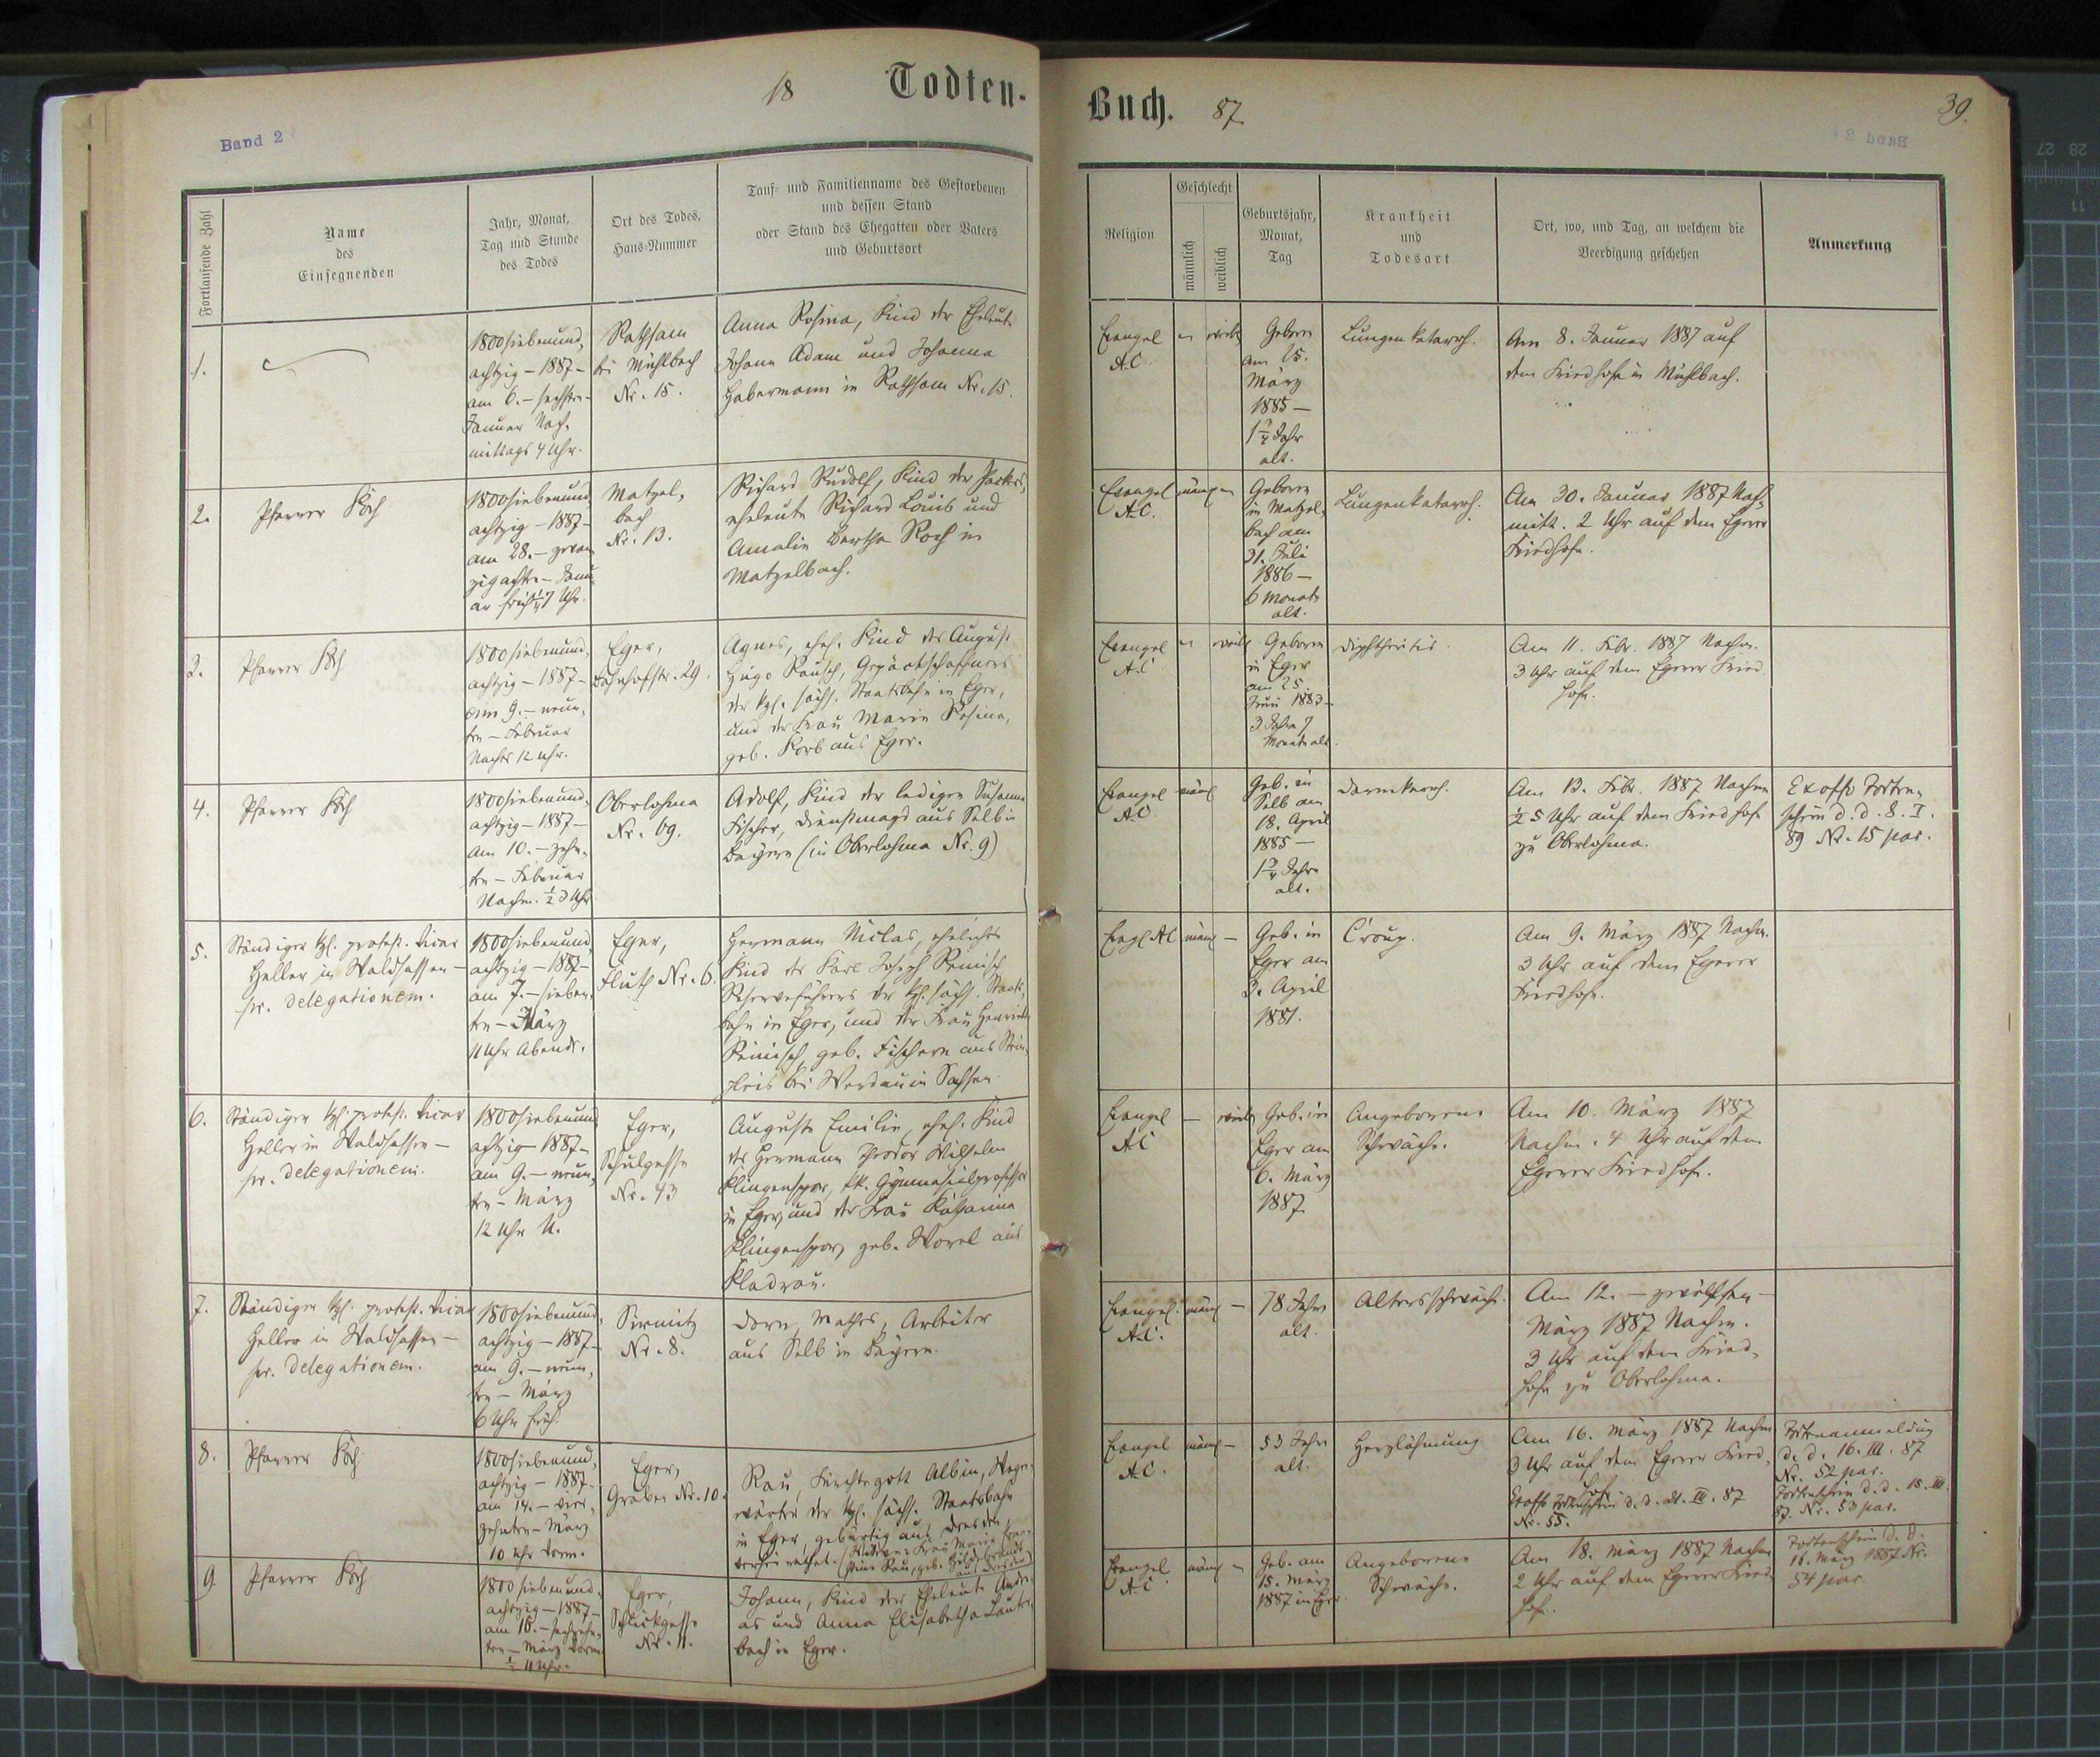 18 Todten-
Band 2
Fortlaufende Zahl
Name
des
Einsegnenden
Jahr, Monat,
Tag und Stunde
des Todes
Ort des Todes,
Haus-Nummer
Tauf- und Familienname des Gestorbenen
und dessen Stand
oder Stand des Ehegatten oder Vaters
und Geburtsort
1.
1800siebenund,
achtzig – 1887 –
am 6. – sechsten –
Januar Nach-
mittags 4 Uhr.
Rathsam
bei Mühlbach
Nr. 15.
Anna Rosina, Kind der Eheleute
Johann Adam und Johanna
Habermann in Rathsam Nr. 15.
2.
Pfarrer Koch
1800siebenund,
achtzig – 1887 –
am 28. – zwan
zigachten – Janu
ar früh 7 Uhr.
Matzel,
bach
Nr. 13.
Richard Rudolf, Kind der
eheleute Richard Louis und
Amalie Bertha Koch in
Matzelbach.
3.
Pfarrer Koch
1800siebenund,
achtzig – 1887 –
am 9. – neun,
ten – Februar
Nachts 12 Uhr.
Eger,
Bahnhofstr. 29.
Agnes, ehel. Kind des August
Hugo Rausch, Gepäckschaffners
der kgl. sächs. Staatsbahn in Eger,
und der Frau Marie Rosina,
geb. Korb aus Eger.
4.
Pfarrer Koch
1800siebenund,
achtzig – 1887 –
am 10. – zehn,
ten – Februar
Nachm. ½ 3 Uhr
Oberlohma
Nr. 69.
Adolf, Kind der ledigen Susanna
Fischer, Dienstmagd aus Selb in
Bayern (in Oberlohma Nr. 9)
5.
Ständiger kgl. protest. Vicar
Heller in Waldsassen –
pr. delegationem.
1800siebenund,
achtzig – 1887 –
am 7. – sieben,
ten – März
11 Uhr Abends.
Eger,
Fluth Nr. 6.
Hermann Niklas, eheliches
Kind des Karl Joseph Reinisch
Reserveführers der kgl. sächs. Staats,
bahn in Eger, und der Frau Henriette
Reinisch, geb. Fischern aus Stein,
pleis bei Werdau in Sachsen.
6.
Ständiger kgl. protest. Vicar
Heller in Waldsassen –
pr. delegationem.
1800siebenund
achtzig – 1887 –
am 9. – neun,
ten – März
12 Uhr M.
Eger,
Schulgasse
Nr. 43
Auguste Emilie, ehel. Kind
des Hermann Theodor Wilhelm
Klingenspor, kk. Gymnasialprofessor
in Eger, und der Frau Katharina
Klingenspor, geb. Worel aus
Kladrau.
7.
Ständiger kgl. protest. Vicar
Heller in Waldsassen –
pr. delegationem.
1800siebenund,
achtzig – 1887 –
am 9. – neun,
ten – März
6 Uhr früh.
Sirmitz
Nr. 8.
Dorn, Mathes, Arbeiter
aus Selb in Bayern.
8.
Pfarrer Koch
1800siebenund,
achtzig – 1887 –
am 14. – vier,
zehnten – März
10 Uhr Vorm.
Eger,
Graben Nr. 10.
Rau, Fürchtegott Albin, Wagen-
wärter der kgl. sächs. Staatsbahn
in Eger, gebürtig aus Dresden,
verheirathet. (Witwe: Frau Marie
Rau, geb. Hildebrandt
aus Dresden)
9
Pfarrer Koch
1800siebenund,
achtzig – 1887 –
am 16. – sechzehn,
ten – März Vorm
½ 11 Uhr.
Eger,
Schlickgasse
Nr. 11.
Johann, Kind der Eheleute Andre-
as und Anna Elisabetha Lauter,
bach in Eger.
Buch. 87.
39.
Band 2
Religion
Geschlecht
männlich
weiblich
Geburtsjahr,
Monat,
Tag
Krankheit
und
Todesart
Ort, wo, und Tag, an welchem die
Beerdigung geschehen
Anmerkung
Evangel
A.C.
– weibl
Geboren
am 15.
März
1885 –
1¾ Jahr
alt.
Lungenkatarrh.
Am 8. Januar 1887 auf
dem Friedhofe in Mühlbach.
Evangel
A.C.
männl –
Geboren
in Matzel,
bach am
31. Juli
1886 –
6 Monate
alt.
Lungenkatarrh.
Am 30. Januar 1887 Nach,
mitt. 2 Uhr auf dem Egerer
Friedhofe.
Evangel
A.C
– weibl
Geboren
in Eger
am 25.
Juni 1883 –
3 Jahre 7
Monate alt.
Diphtheritis.
Am 11. Febr. 1887 Nachm.
3 Uhr auf dem Egerer Fried
hofe.
Evangel
A.C
männl
Geb. in
Selb am
18. April
1885 –
1¾ Jahre
alt.
Darmkatarrh.
Am 13. Febr. 1887 Nachm
½ 5 Uhr auf dem Friedhof
zu Oberlohma.
Exoffo Todten,
schein d. d. 8. I.
89 Nr. 15 par.
Evgl AC
männl –
Geb. in
Eger am
3. April
1881.
Croup.
Am 9. März 1887 Nachm.
3 Uhr auf dem Egerer
Friedhofe.
Evangel
A.C
– weibl
Geb. in
Eger am
6. März
1887.
Angeborene
Schwäche.
Am 10. März 1887
Nachm. 4 Uhr auf dem
Egerer Friedhofe.
Evangel.
A.C.
männl –
78 Jahre
alt.
Altersschwäche.
Am 12. – zwölften –
März 1887 Nachm.
3 Uhr auf dem Fried,
hofe zu Oberlohma.
Evangel
A.C.
männl –
53 Jahre
alt.
Herzlähmung
Am 16. März 1887 Nachm
3 Uhr auf dem Egerer Fried,
hofe.
Exoffo Todtenschein d. d. 21. III. 87
Nr. 55.
Todtenanmeldung
d. d. 16. III. 87
Nr. 52 par.
Todtenschein d. d. 15. III.
87. Nr. 53 par.
Evangel
A.C
männl –
Geb. am
15. März
1887 in Eger.
Angeborene
Schwäche.
Am 18. März 1887 Nachm
2 Uhr auf dem Egerer Fried-
hofe.
Todtenschein d. d.
16. März 1887 Nr.
54 par.